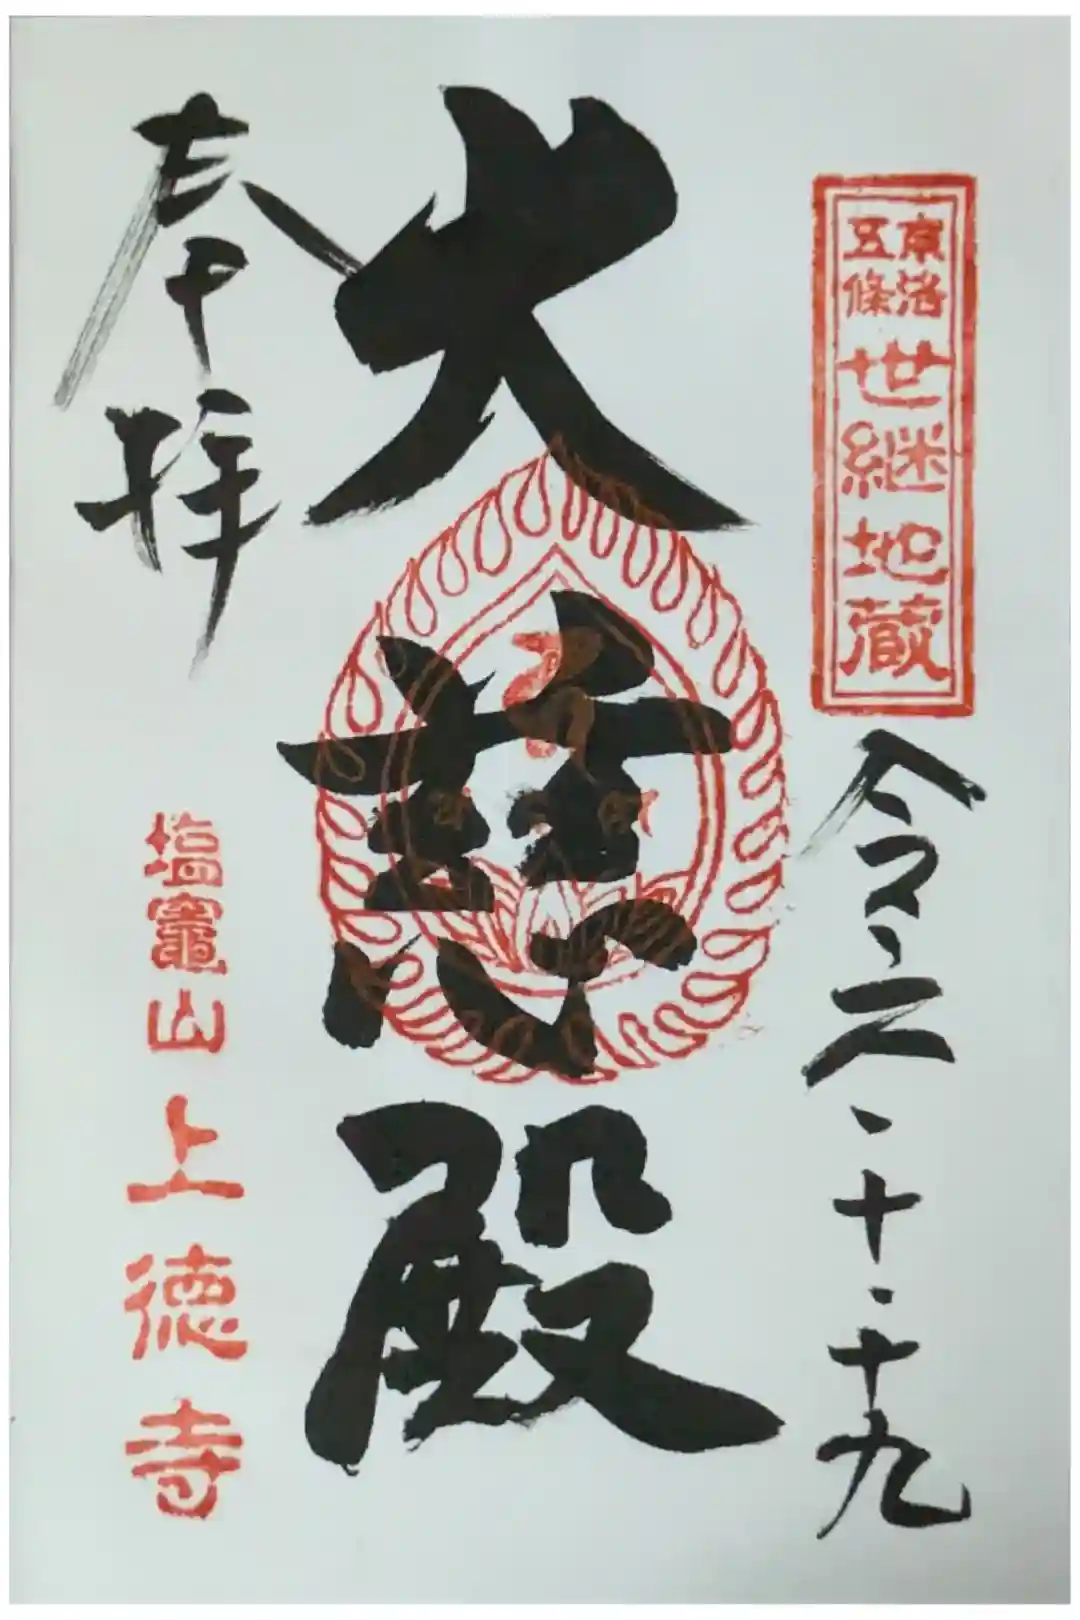 京洛
五條
世継地蔵
令和元、十、十九
大慈殿
奉拝
塩竈山
上徳寺